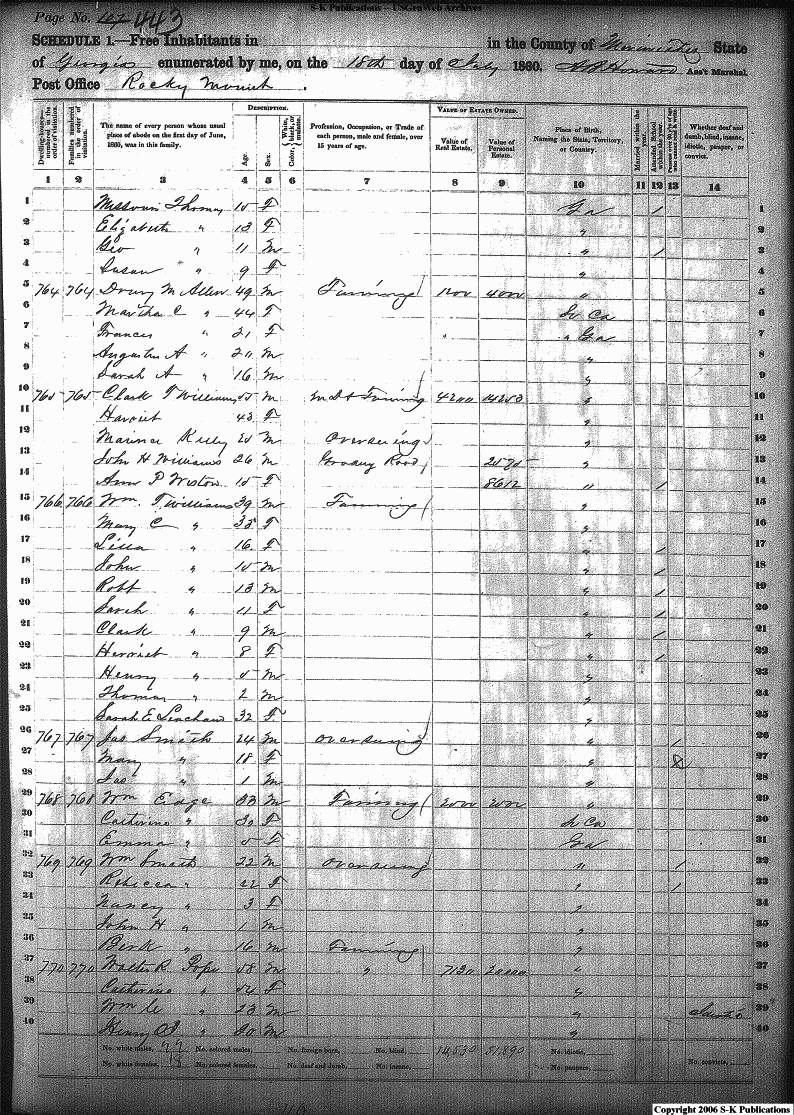 S-K Publications -- USGenWeb Archives
Page No. 107 443
SCHEDULE 1.—Free Inhabitants in in the County of State
of Georgia enumerated by me, on the 18th day of July 1860. Howard Ass't Marshal.
Post Office Rocky Mount.
DESCRIPTION. VALUE OF ESTATE OWNED.
Dwelling-houses—numbered in the order of visitation. Families numbered in the order of visitation. The name of every person whose usual place of abode on the first day of June, 1860, was in this family. Age. Sex. Color, White, black, or mulatto. Profession, Occupation, or Trade of each person, male and female, over 15 years of age. Value of Real Estate. Value of Personal Estate. Place of Birth, Naming the State, Territory, or Country. Married within the year. Attended School within the year. Persons over 20 y'rs of age who cannot read & write. Whether deaf and dumb, blind, insane, idiotic, pauper, or convict.
1 2 3 4 5 6 7 8 9 10 11 12 13 14
1 Thomas 15 F Ga / 1
2 Elizabeth " 13 F " 2
3 Geo " 11 M " / 3
4 Susan " 9 F " 4
5 764 764 Drury M Allen 49 M Farming 1200 4000 " 5
6 Martha C " 44 F So Ca 6
7 Frances " 21 F " Ga 7
8 Augustus A " 20 M " 8
9 Sarah A " 16 M " 9
10 765 765 Clark T Williams 55 M Farming 4200 14253 " 10
11 Harriet 43 F " 11
12 Kelly 20 M Overseeing " 12
13 John H Williams 26 M Grocery 2575 " 13
14 Ann P Weston 15 F 8612 " / 14
15 766 766 Wm. T Williams 39 M Farming " 15
16 Mary C " 35 F " 16
17 " 16 F " / 17
18 John " 15 M " / 18
19 Robt " 13 M " / 19
20 Sarah " 11 F " / 20
21 Clark " 9 M " / 21
22 Harriet " 8 F " / 22
23 Henry " 5 M " 23
24 Thomas " 2 M " 24
25 Sarah E 32 F " 25
26 767 767 Jas Smith 24 M Overseeing " / 26
27 Mary " 18 F " X 27
28 Jas " 1 M " 28
29 768 768 Wm Eage 33 M Farming 2000 2000 " 29
30 Catherine " 30 F So Ca 30
31 Emma " 5 F Ga 31
32 769 769 Wm Smith 22 M Overseeing " / 32
33 Rebecca " 22 F " / 33
34 Nancy " 3 F " 34
35 John H " 1 M " 35
36 Berk " 16 M Farming " 36
37 770 770 Walter R. Pope 58 M " 7130 20000 " 37
38 Catherine " 54 F " 38
39 Wm " 23 M " 39
40 Henry " 20 M " 40
No. white males, No. colored males, No. foreign born, No. blind, 14,530 51,890 No. idiotic,
No. white females, 18 No. colored females, No. deaf and dumb, No. insane, No. paupers, No. convicts,
Copyright 2006 S-K Publications